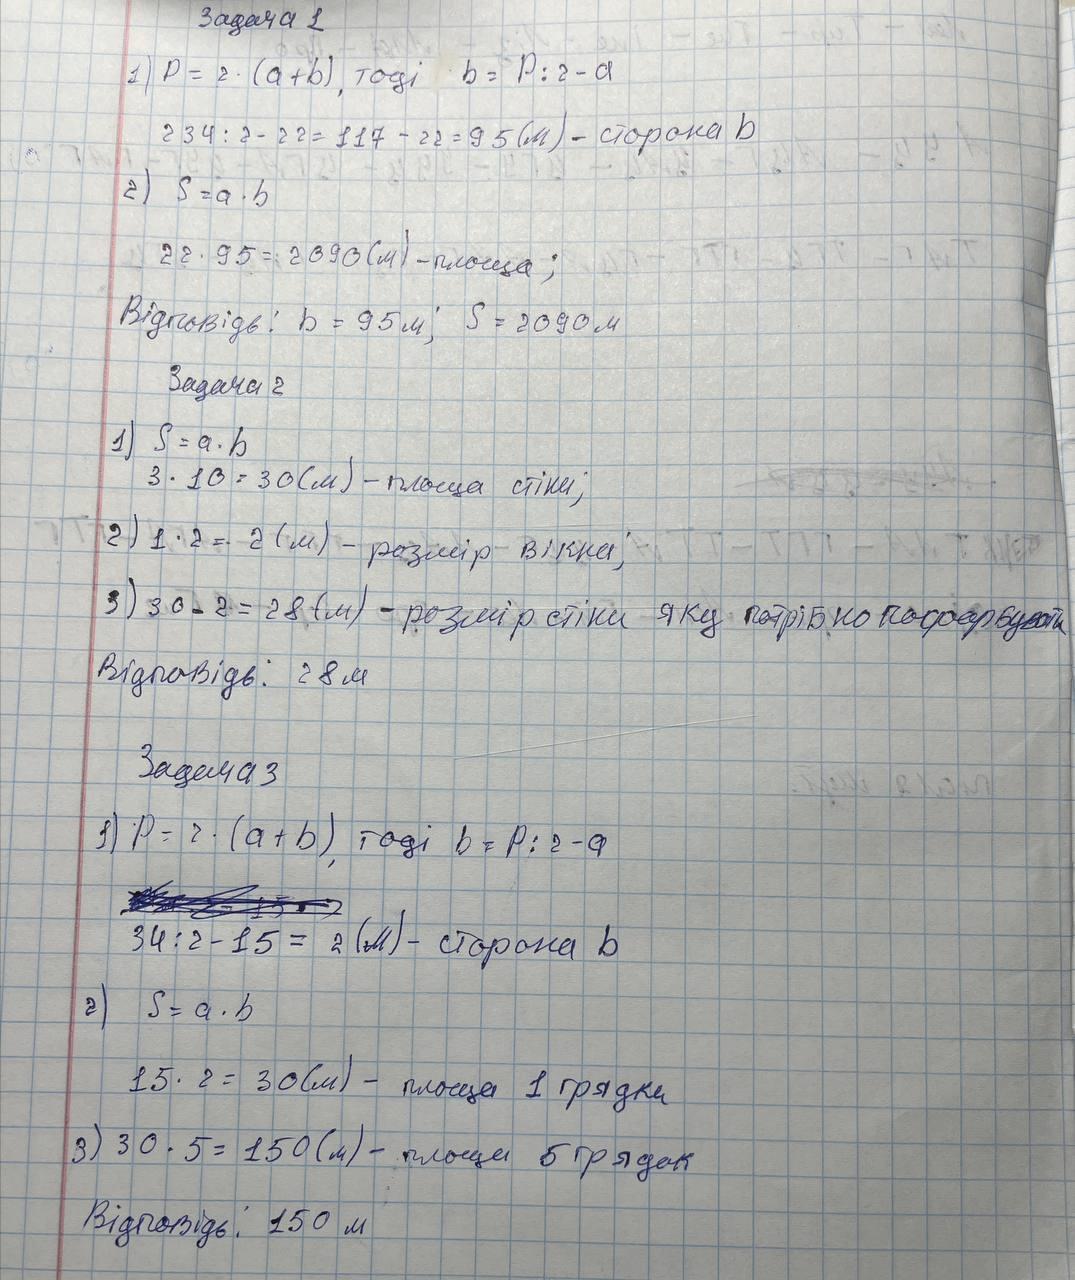 Задача 1
1) P = 2 · (a+b), тоді b = P : 2 - a
234 : 2 - 22 = 117 - 22 = 95 (м) - сторона b
2) S = a · b
22 · 95 = 2090 (м) - площа;
Відповідь: b = 95 м; S = 2090 м
Задача 2
1) S = a · b
3 · 10 = 30 (м) - площа стіни;
2) 1 · 2 = 2 (м) - розмір вікна;
3) 30 - 2 = 28 (м) - розмір стіни яку потрібно пофарбувати
Відповідь: 28 м
Задача 3
1) P = 2 · (a+b), тоді b = P : 2 - a
34 : 2 - 15 = 2 (м) - сторона b
2) S = a · b
15 · 2 = 30 (м) - площа 1 грядки
3) 30 · 5 = 150 (м) - площа 5 грядок
Відповідь: 150 м